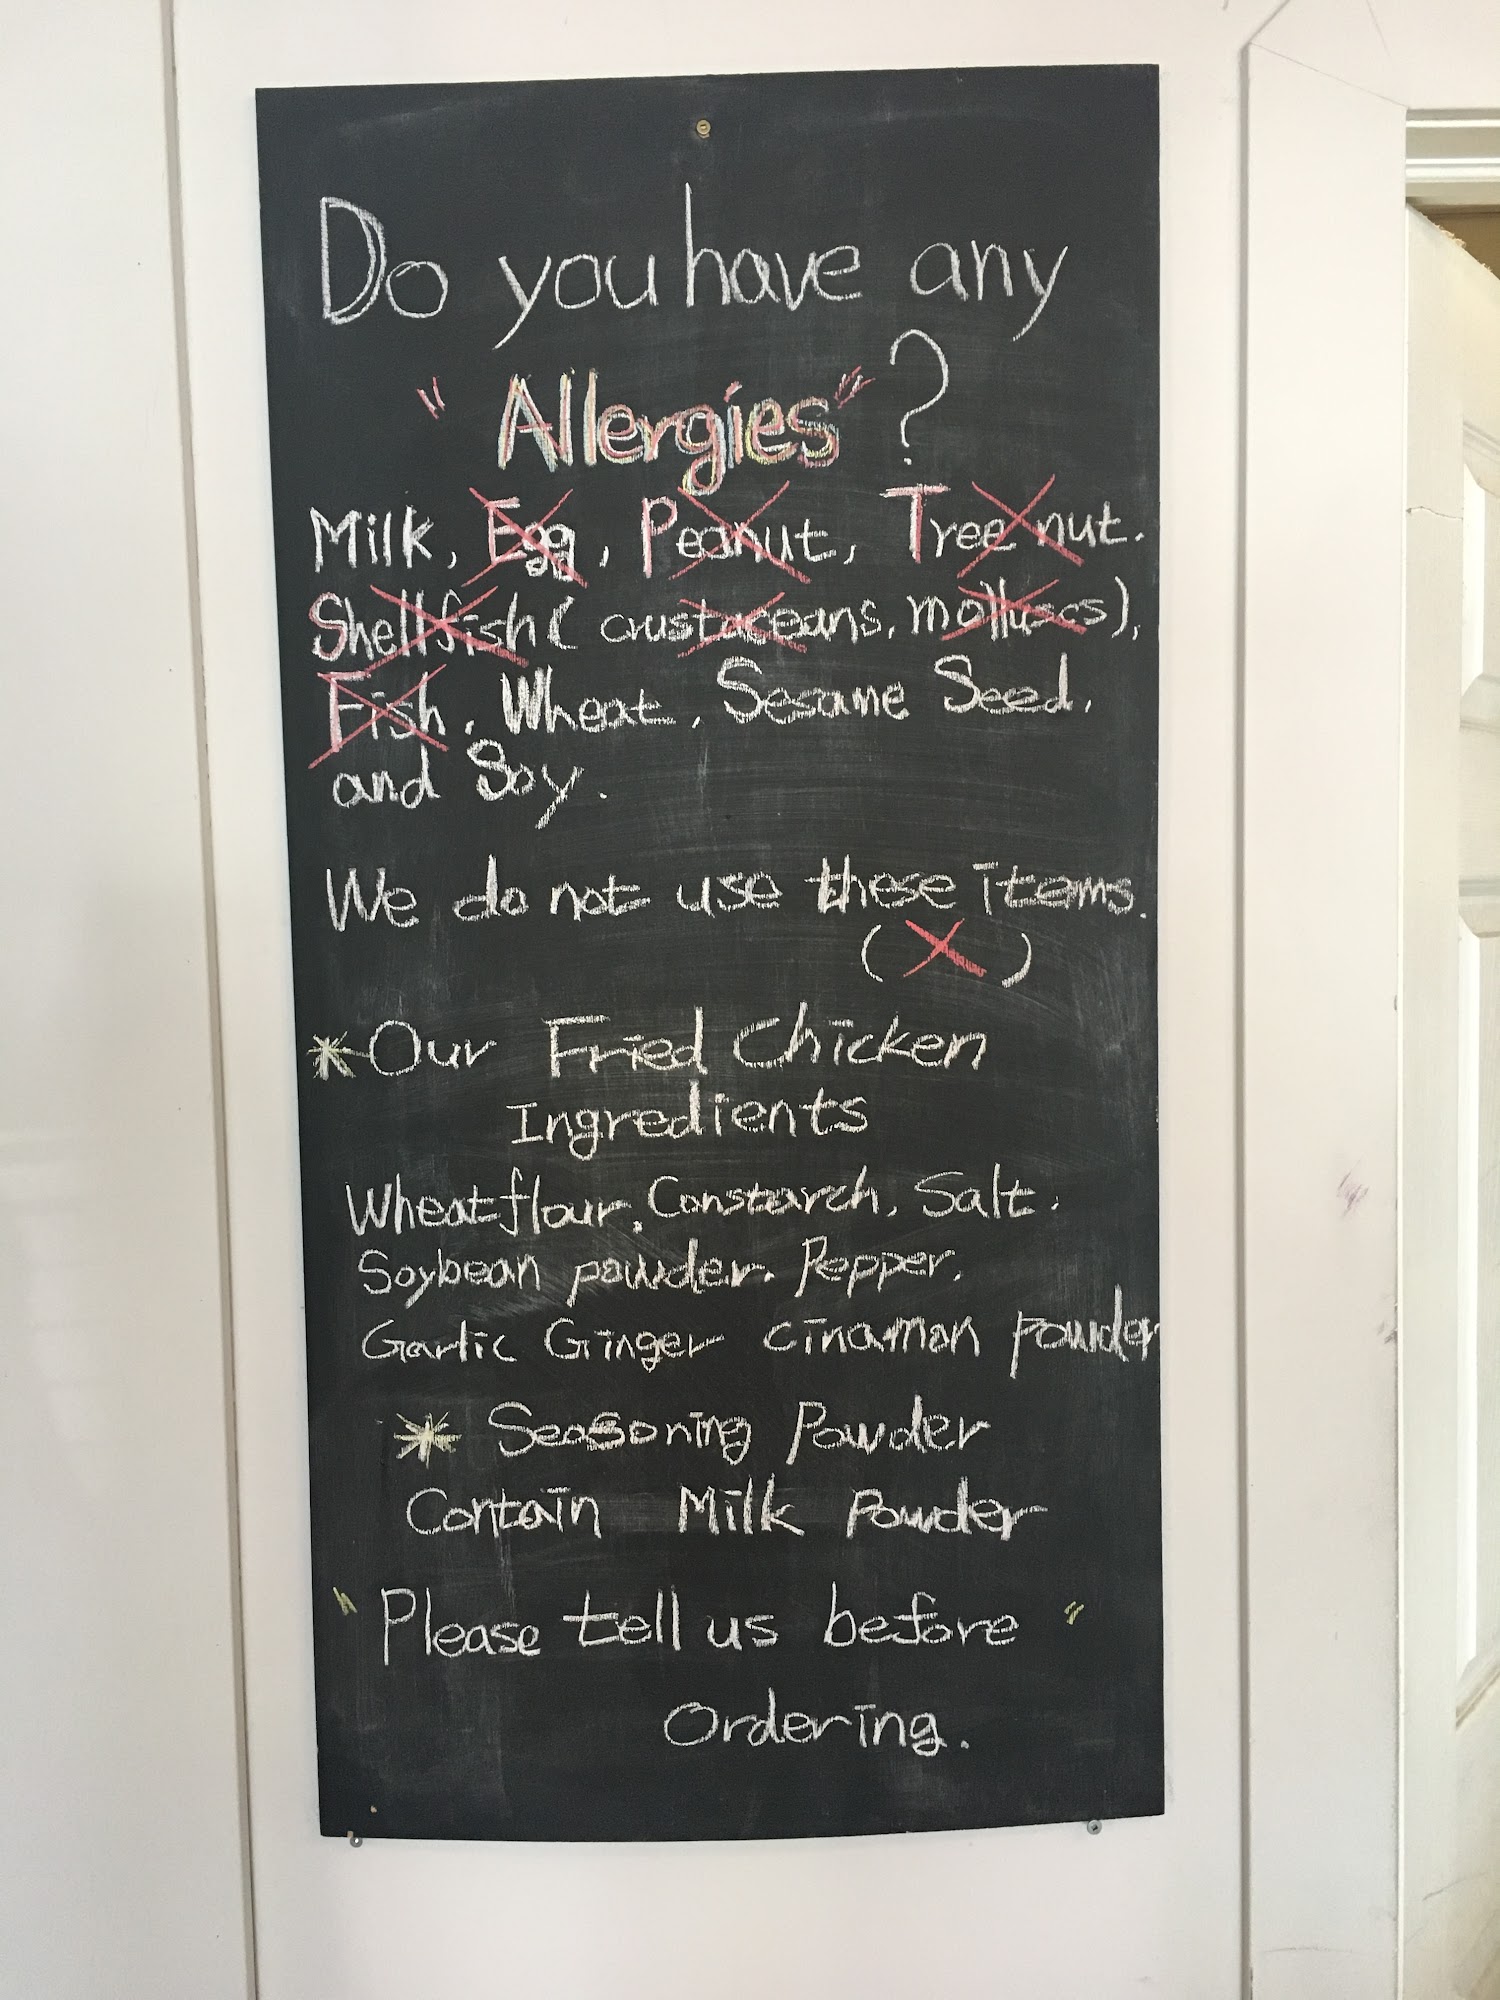 Do you have any
"Allergies"?
Milk, Egg, Peanut, Tree nut.
Shellfish (crustaceans, molluscs),
Fish, Wheat, Sesame Seed,
and Soy.
We do not use these items.
(X)
*Our Fried Chicken
Ingredients
Wheatflour, Constarch, Salt.
Soybean powder. Pepper.
Garlic Ginger cinamon powder
* Seasoning Powder
Contain Milk Powder
"Please tell us before"
Ordering.